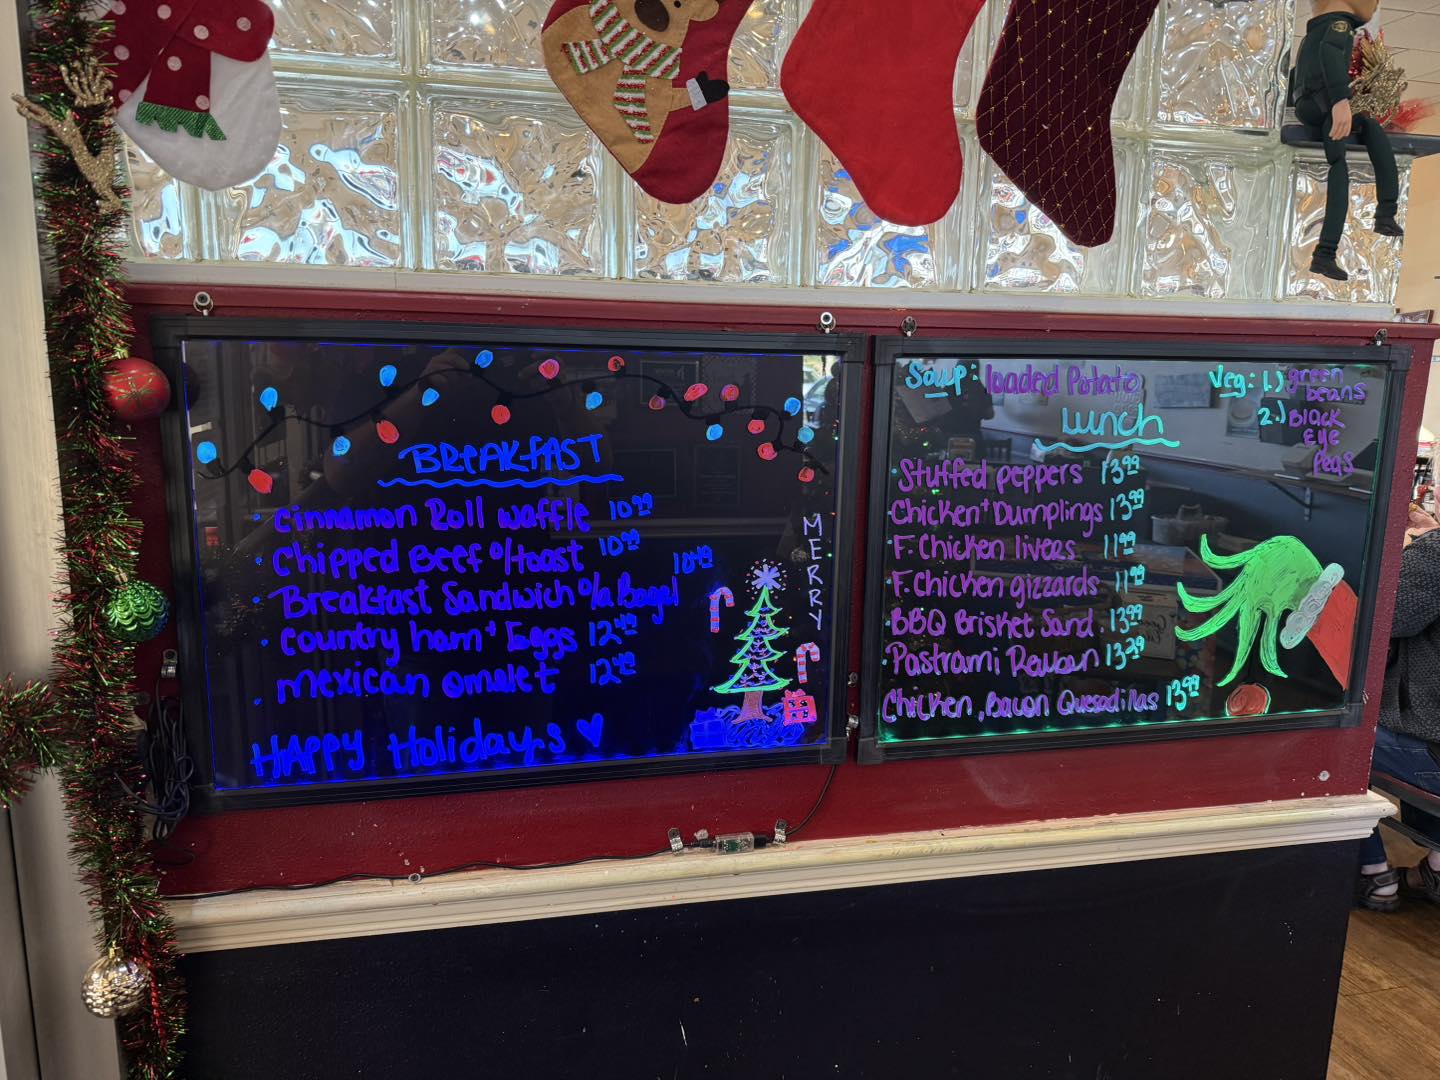 BREAKFAST
• Cinnamon Roll Waffle 10.99
• Chipped Beef o/toast 10.99
• Breakfast Sandwich o/a Bagel 10.49
• Country ham + Eggs 12.49
• Mexican omelet 12.49
HAPPY Holidays ♥
MERRY
Soup: loaded Potato
Veg: 1.) green beans
2.) Black
EYE
peas
Lunch
• Stuffed peppers 13.99
• Chicken + Dumplings 13.99
• F. Chicken livers 11.99
• F. Chicken gizzards 11.99
• BBQ Brisket Sand. 13.99
• Pastrami Reuben 13.29
Chicken, Bacon Quesadillas 13.99